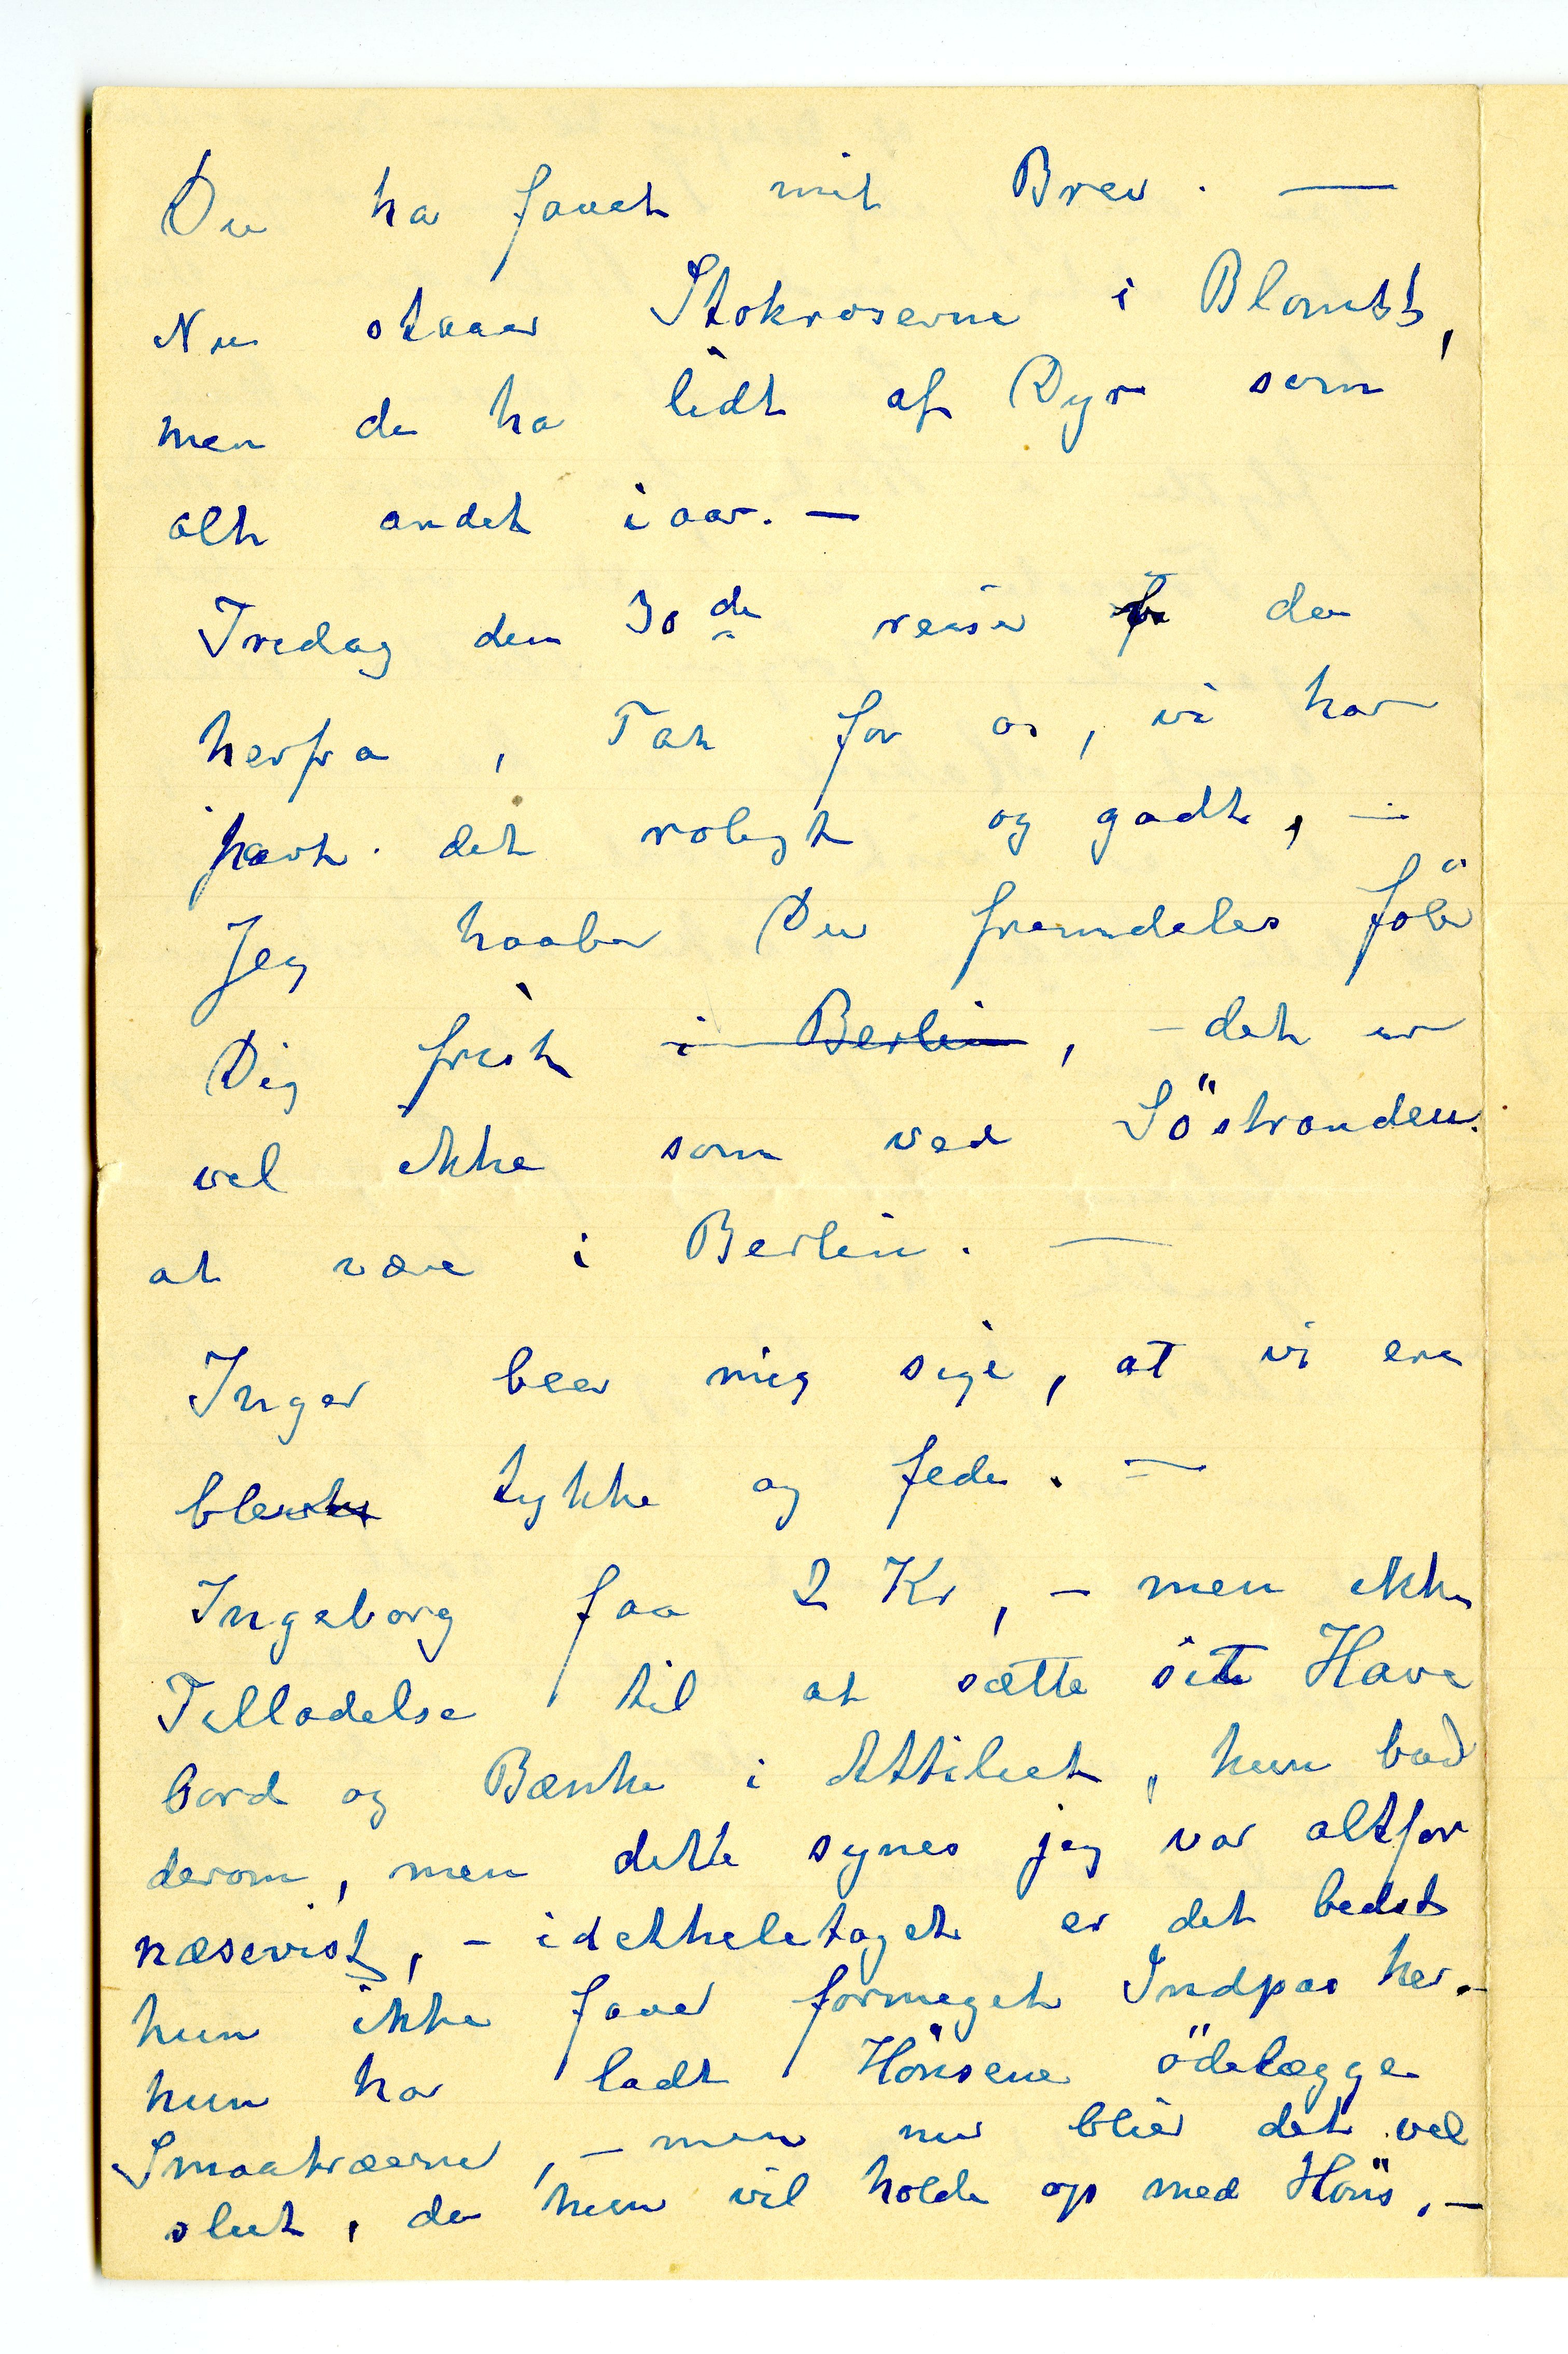 Du ha faaet mit Brev. —
Nu staaer Stokroserne i Blomst,
men de ha lidt af Dyr som
alt andet iaar. —
Tredag den 30de reiser de
herfra, Tak for os, vi har
havt det roligt og godt, —
Jeg haaber Du fremdeles föler
Dig frisk i Berlin, – det er
vel ikke som ved Söstranden
at være i Berlin. —
Inger beer mig sige, at vi ere
blevne tykke og fede. —
Ingeborg faa 2 Kr, – men ikke
Tilladelse til at sætte sit Have
bord og Bænke i Attiliet, hun bad
derom, men dette synes jeg var altfor
næsevist, – idetheletaget er det bedst
hun ikke faaer formeget Indpas her. –
hun har ladt Hönsene ödelægge
Smaatræerne, – men nu blier det vel
slut, da hun vil holde op med Höns. –